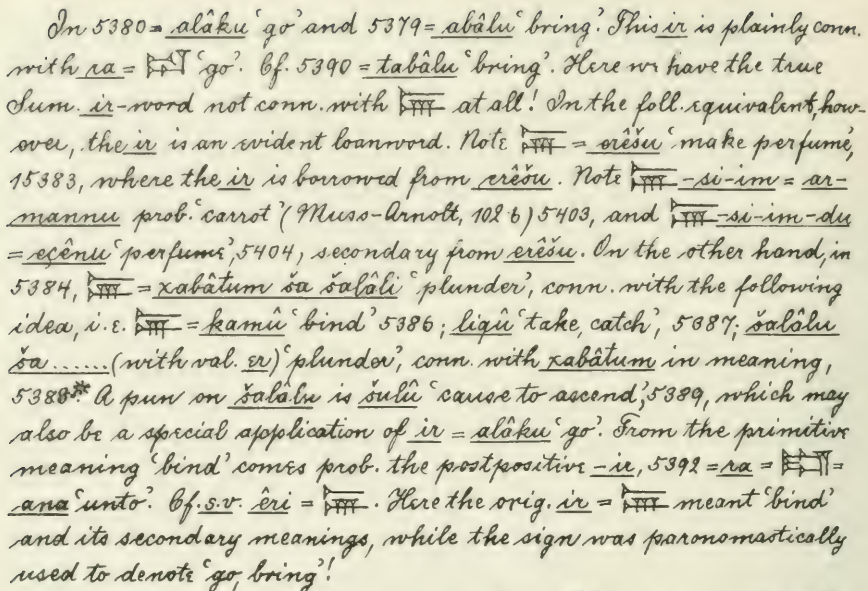 In 5380 = alâku 'go' and 5379 = abâlu 'bring'. This ir is plainly conn.
with ra = 'go'. Cf. 5390 = tabâlu 'bring'. Here we have the true
Sum. ir-word not conn. with at all! In the foll. equivalent, how-
ever, the ir is an evident loanword. Note = erêšu 'make perfume',
15383, where the ir is borrowed from erêšu. Note -si-im = ar-
mannu prob. 'carrot' (Muss-Arnolt, 102 b) 5403, and -si-im-du
= eçênu 'perfume', 5404, secondary from erêšu. On the other hand, in
5384, = xabâtum ša šalâli 'plunder', conn. with the following
idea, i.e. = kamû 'bind' 5386; liqû 'take, catch', 5387; šalâlu
ša ...... (with val. er) 'plunder', conn. with xabâtum in meaning,
5388*. A pun on šalâlu is šulû 'cause to ascend', 5389, which may
also be a special application of ir = alâku 'go'. From the primitive
meaning 'bind' comes prob. the postpositive -ir, 5392 = ra = =
ana 'unto'. Cf. s.v. êri = . Here the orig. ir = meant 'bind'
and its secondary meanings, while the sign was paronomastically
used to denote 'go, bring'!